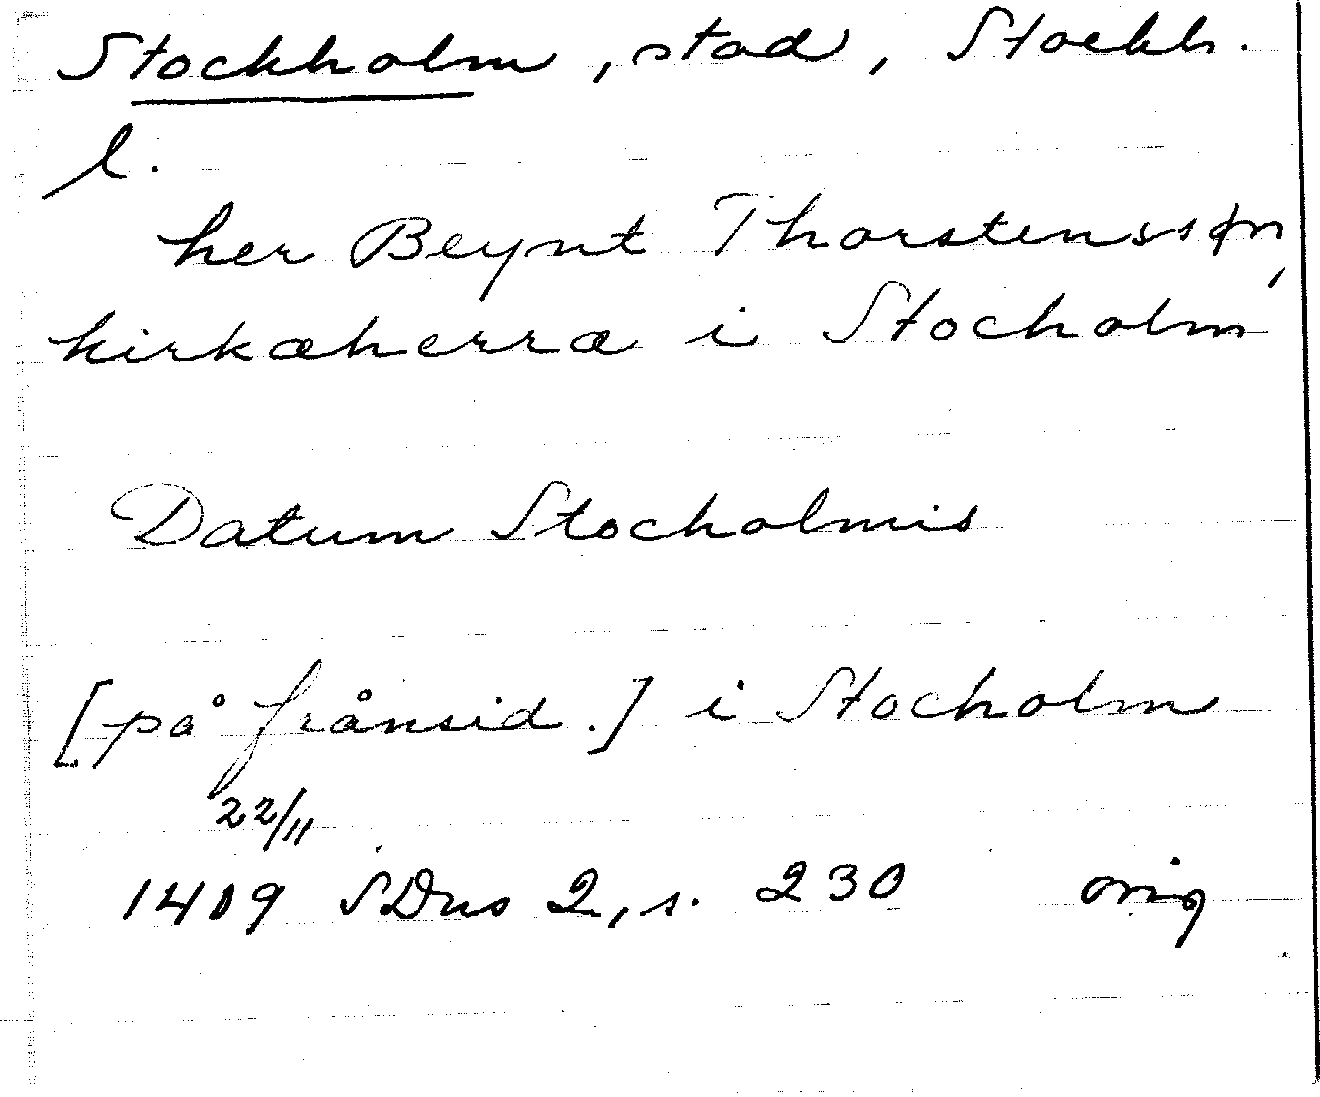 Stockholm, stad, Stockh.
l.
her Beynt Thorstensssøn,
kirkæherra i Stocholm
Datum Stocholmis
[på frånsid.] i Stocholm
22/11
1409 SDns 2, s. 230 orig